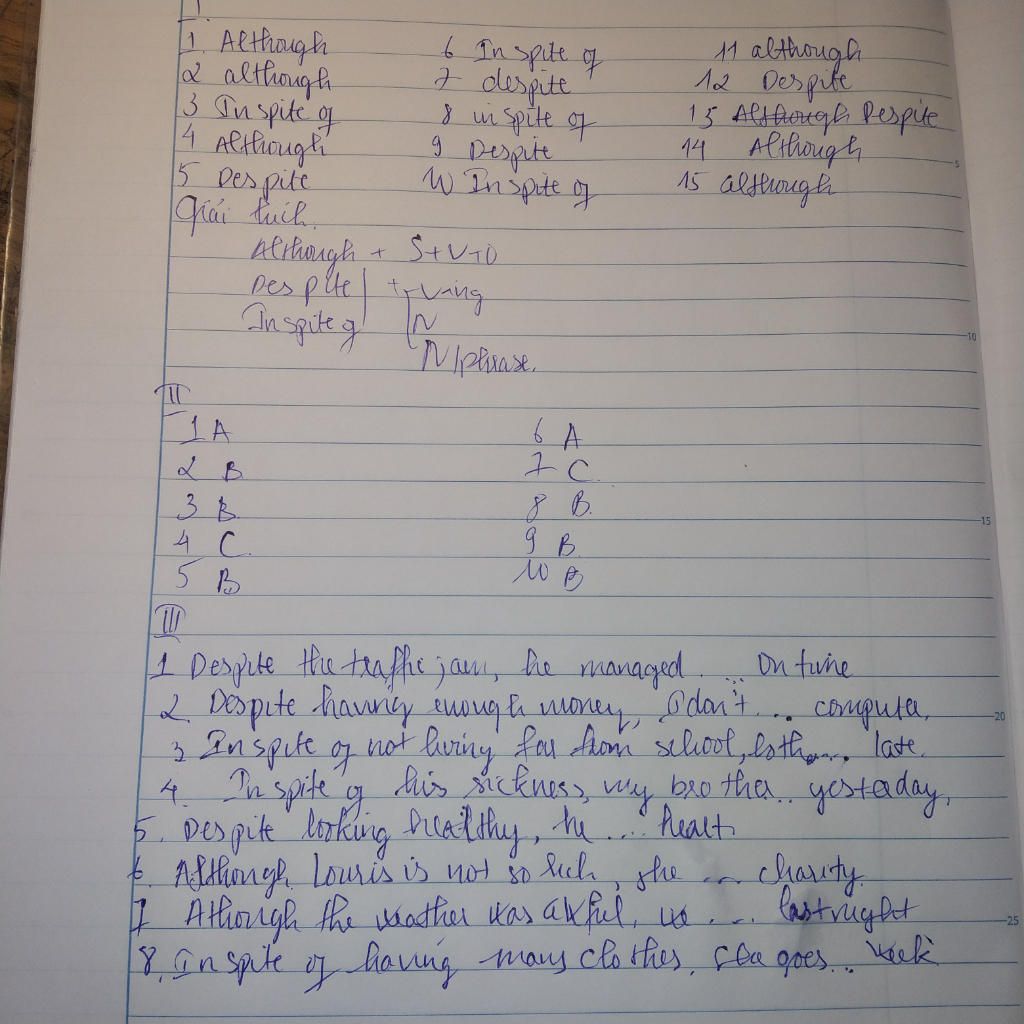 I
1. Although 6 In spite of 11 although
2 although 7 despite 12 Despite
3 In spite of 8 in spite of 13 Although Despite
4 Although 9 Despite 14 Although
5 Despite 10 In spite of 15 although
Giải thích.
Although + S+V+O
Despite + V-ing
In spite of N
N/phrase.
II
1 A 6 A
2 B 7 C.
3 B. 8 B.
4 C. 9 B.
5 B 10 B
III
1 Despite the traffic jam, he managed .... on time
2. Despite having enough money, I don't ... computer.
3 In spite of not living far from school, .... late.
4. In spite of his sickness, my brother .. yesterday,
5. Despite looking healthy, he .... heart
6. Although Louris is not so rich, she ... charity.
7 Athough the weather was awful, we .... last night
8. In spite of having many clothes, goes .. week
5
10
15
20
25